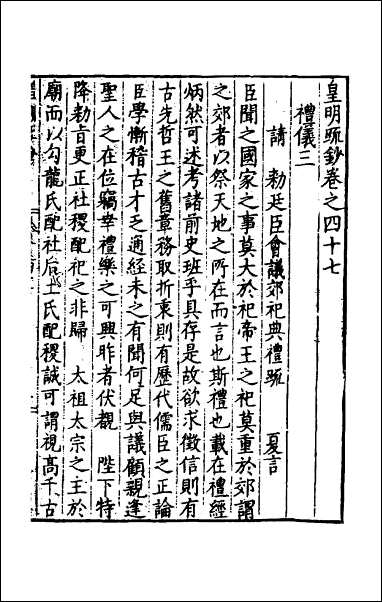 皇明疏鈔卷之四十七
禮儀三
請 勑廷臣會議郊祀典禮疏 夏言
臣聞之國家之事莫大於祀帝王之祀莫重於郊謂
之郊者以祭天地之所在而言也斯禮也載在禮經
炳然可述考諸前史班乎具存是故欲求徵信則有
古先哲王之舊章務取折衷則有歷代儒臣之正論
臣學慚稽古才乏通經未之有聞何足與議顧親逢
聖人之在位竊幸禮樂之可興昨者伏覩 陛下特
降勑旨更正社稷配祀之非歸 太祖太宗之主於
廟而以勾龍氏配社后土氏配稷誠可謂視高千古